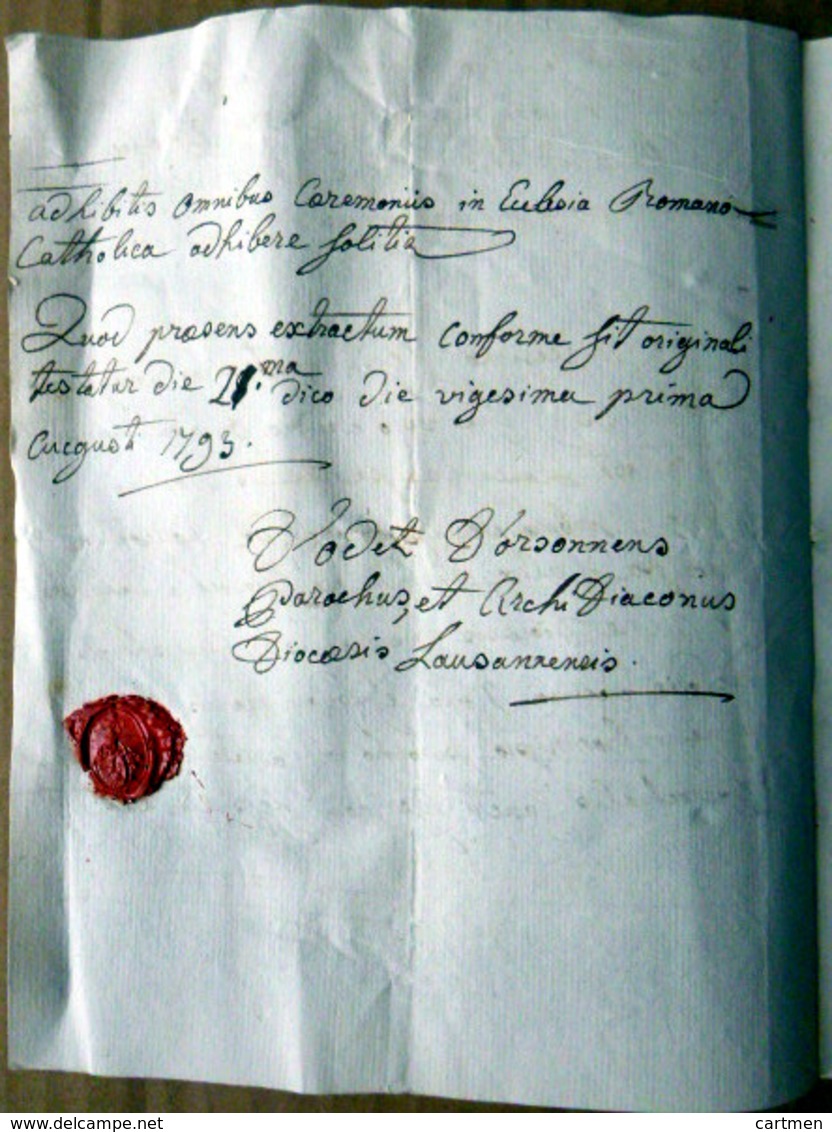 adhibitis omnibus Caremoniis in Eclesia Romano
Catholica adhibere solitis
Quod praesens extractum conforme sit originali
testatur die 21.ma dico die vigesima prima
augusti 1793.
Vodet D'orsonnens
Parochus, et Archi Diaconus
Diocaesis Lausannensis.
cartmen